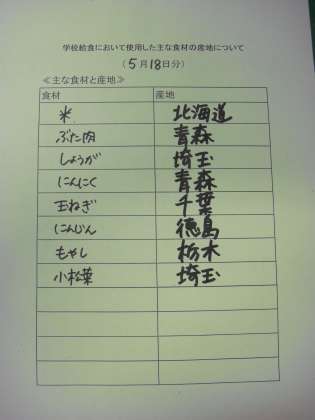 学校給食において使用した主な食材の産地について
（5月18日分）
≪主な食材と産地≫
食材 産地
米 北海道
ぶた肉 青森
しょうが 埼玉
にんにく 青森
玉ねぎ 千葉
にんじん 徳島
もやし 栃木
小松菜 埼玉